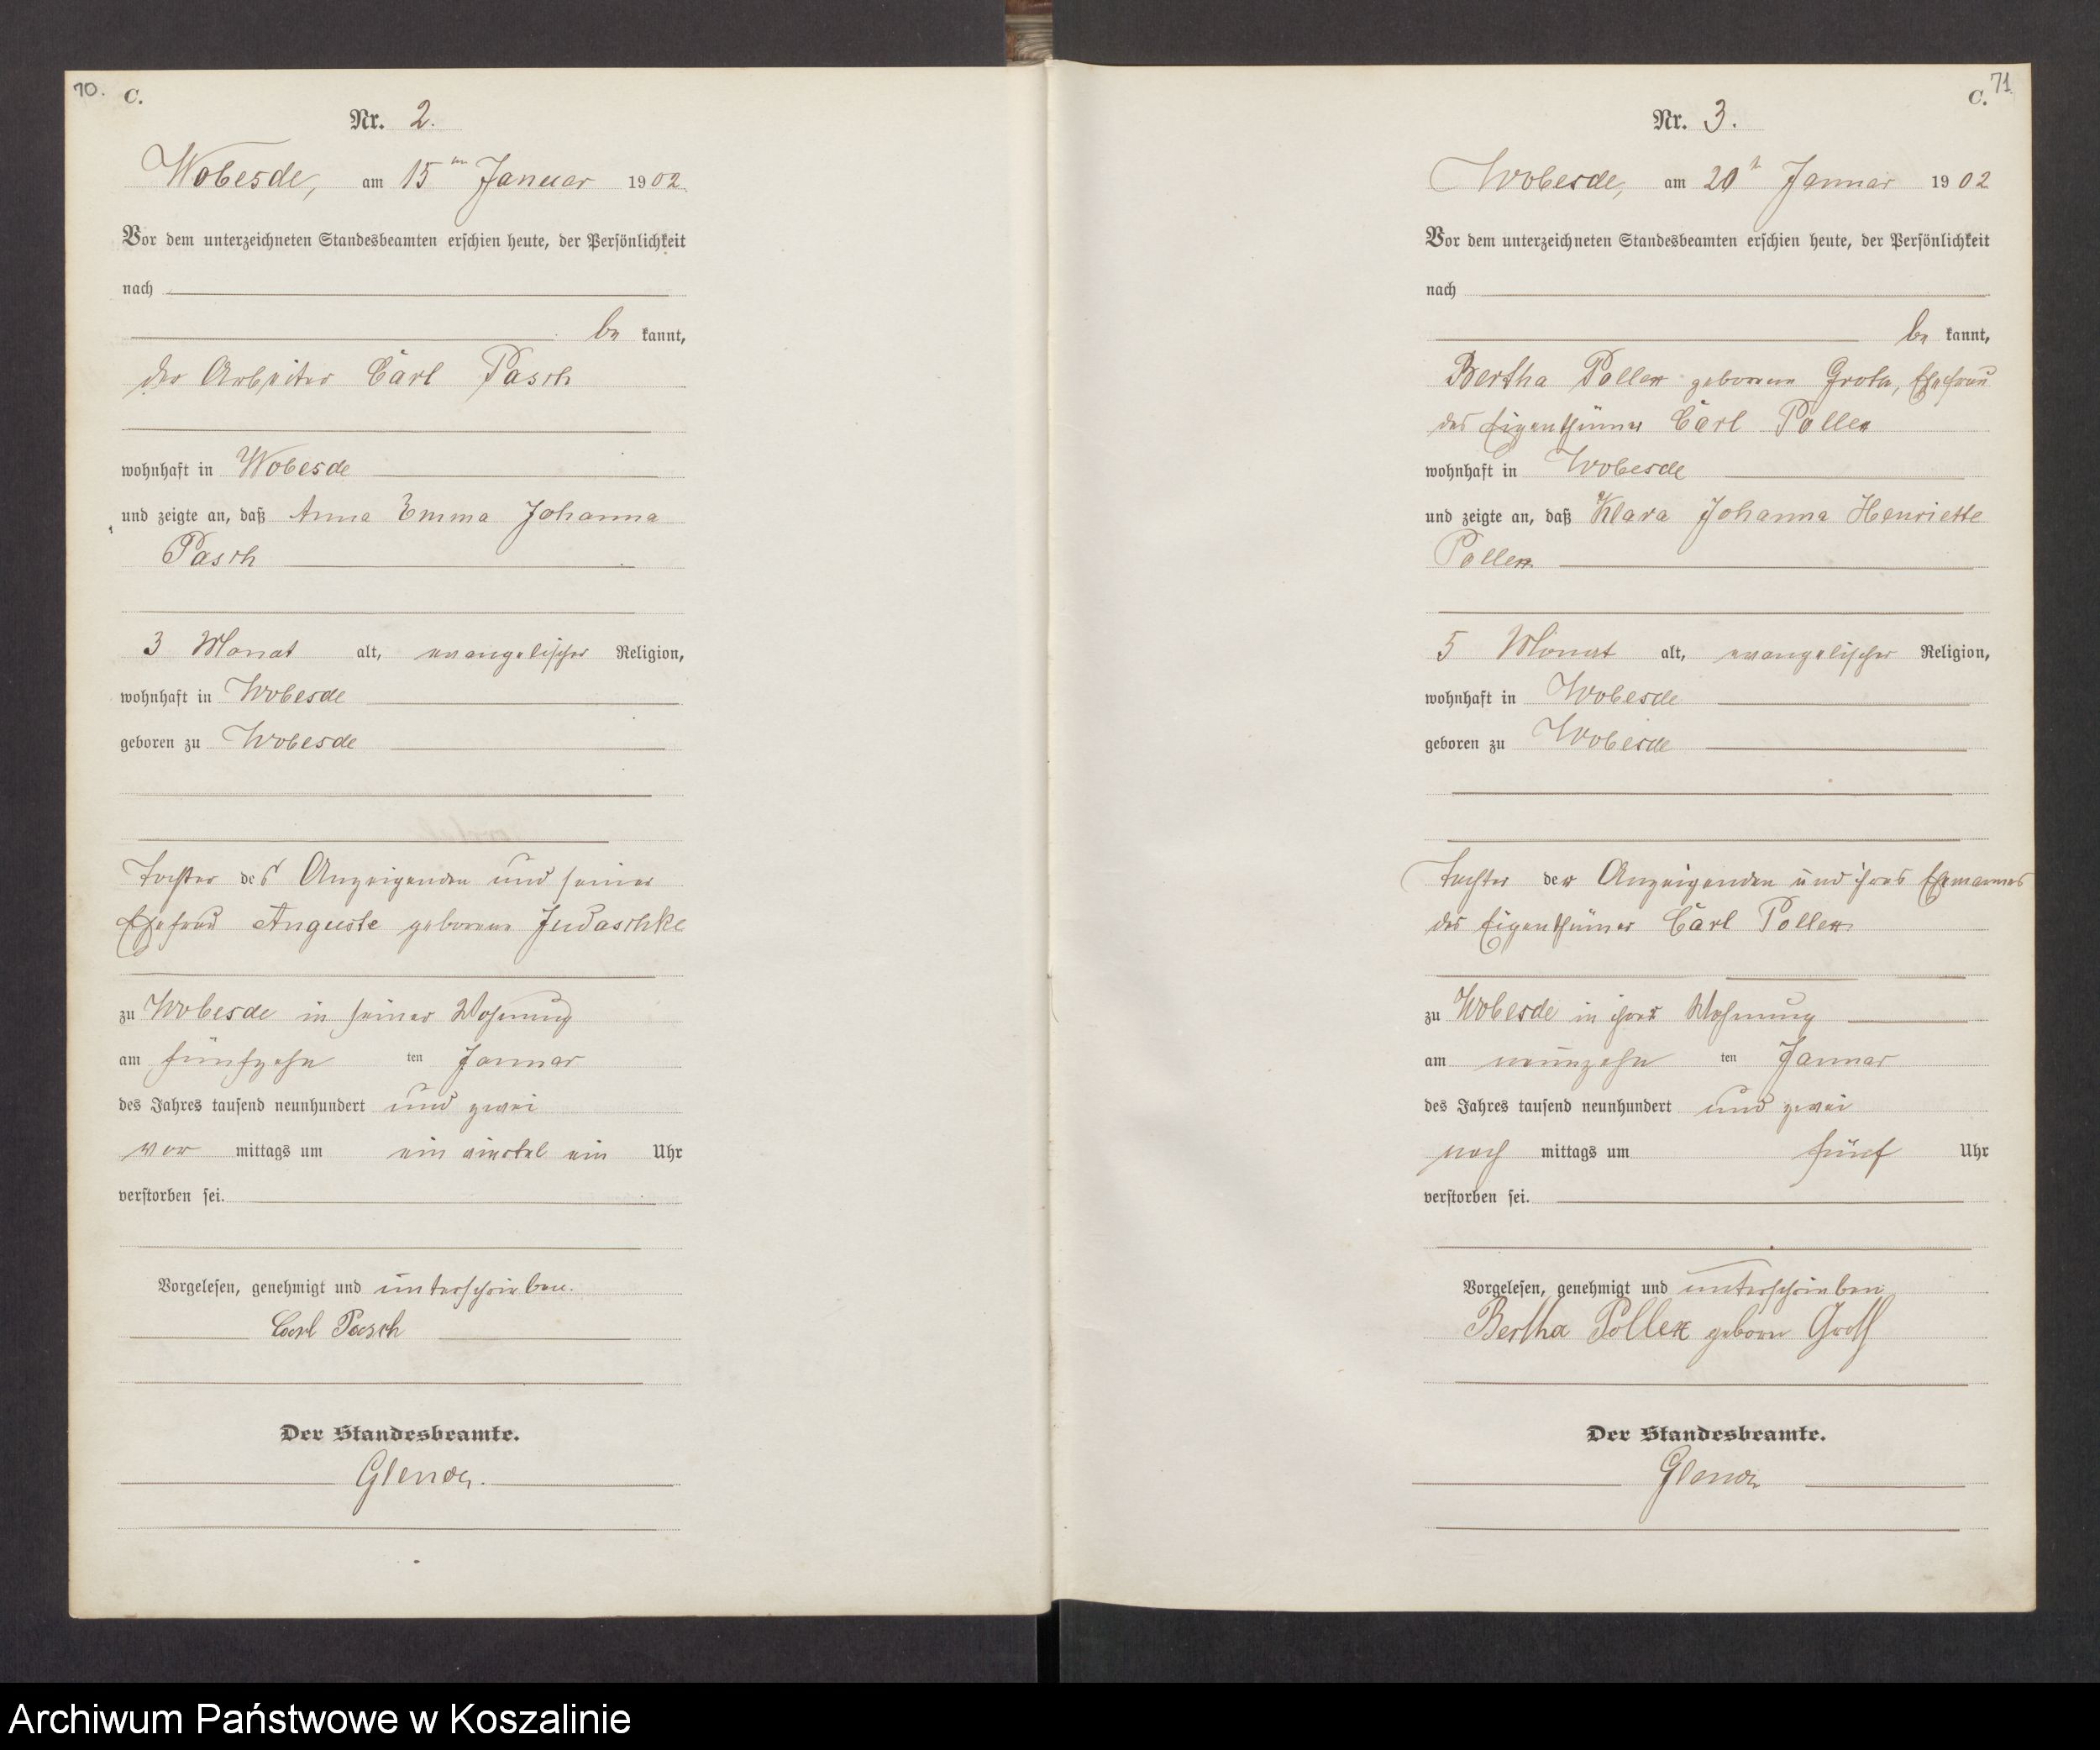 70.
C.
Nr. 2.
Wobesde, am 15ten Januar 1902.
Vor dem unterzeichneten Standesbeamten erschien heute, der Persönlichkeit
nach
be kannt,
der Arbeiter Carl Pasch
wohnhaft in Wobesde
und zeigte an, daß Anna Emma Johanna
Pasch
3 Monat alt, evangelischer Religion,
wohnhaft in Wobesde
geboren zu Wobesde
Tochter des Anzeigenden und seiner
Ehefrau Auguste geborene Judaschke
zu Wobesde in seiner Wohnung
am fünfzehn ten Januar
des Jahres tausend neunhundert und zwei
vor mittags um ein viertel ein Uhr
verstorben sei.
Vorgelesen, genehmigt und unterschrieben.
Carl Pasch
Der Standesbeamte.
71.
C.
Nr. 3.
Wobesde, am 20t Januar 1902
Vor dem unterzeichneten Standesbeamten erschien heute, der Persönlichkeit
nach
be kannt,
Bertha Pollex geborene Grote, Ehefrau
des Eigenthümer Carl Pollex
wohnhaft in Wobesde
und zeigte an, daß Klara Johanna Henriette
Pollex
5 Monat alt, evangelischer Religion,
wohnhaft in Wobesde
geboren zu Wobesde
Tochter der Anzeigenden und ihres Ehemannes
des Eigenthümer Carl Pollex
zu Wobesde in ihrer Wohnung
am neunzehn ten Januar
des Jahres tausend neunhundert und zwei
nach mittags um fünf Uhr
verstorben sei.
Vorgelesen, genehmigt und unterschrieben
Bertha Pollex geborn
Der Standesbeamte.
Archiwum Państwowe w Koszalinie